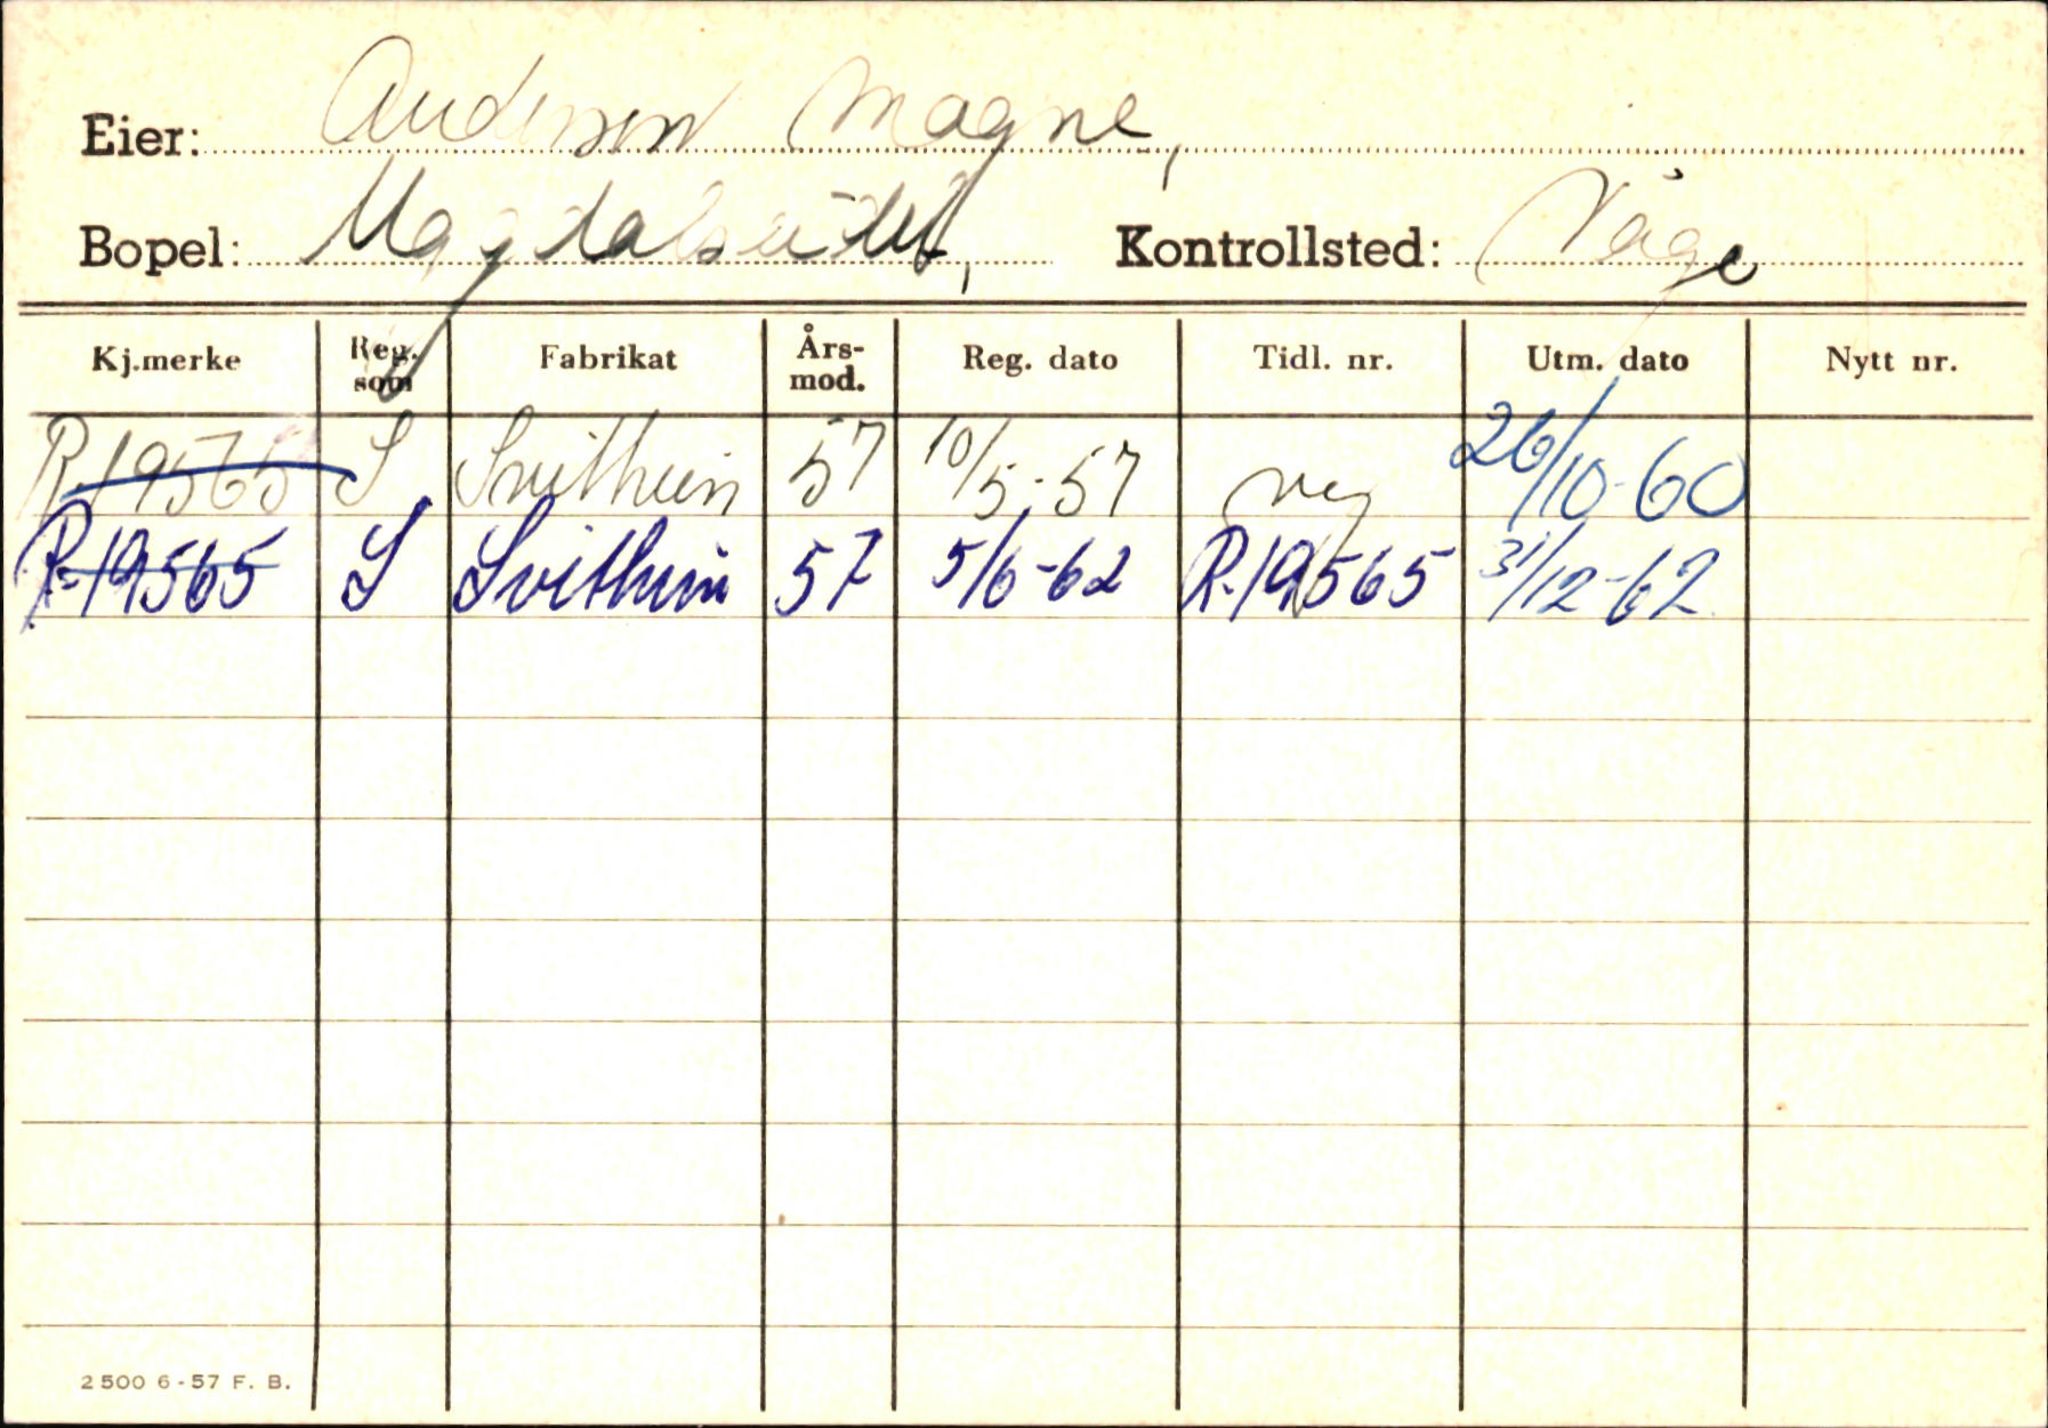 Eier: Andersen Magne,
Bopel: Kontrollsted: Våge
Kj.merke Reg. som Fabrikat Års-mod. Reg. dato Tidl. nr. Utm. dato Nytt nr.
R-19565 S Svithun 57 10/5-57 ny 26/10-60
R-19565 S Svithun 57 5/6-62 R-19565 31/12-62
2500 6-57 F. B.